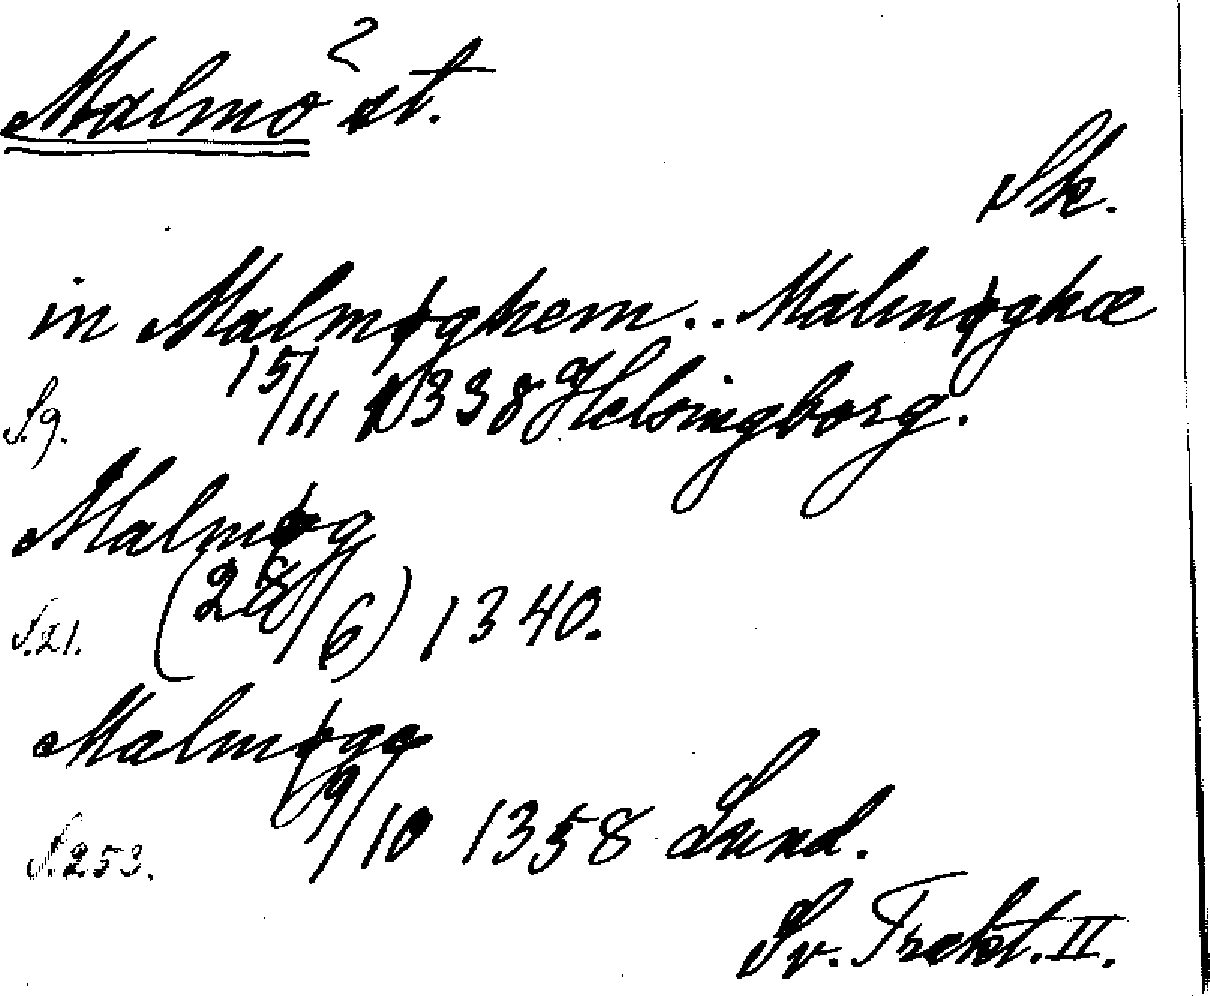 Malmö st.
Sk.
in Malmøghem .. Malmøghæ
15/11 1338 Helsingborg.
S. 9.
Malmøg
(28/6) 1340.
S. 21.
Malmøge
9/10 1358 Lund.
S. 253.
Sv. Trakt. II.